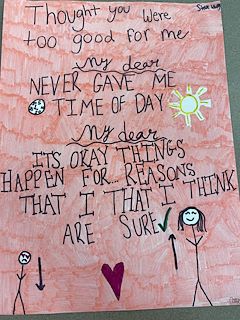 Thought you were
too good for me
my dear
NEVER GAVE ME
TIME OF DAY
my dear
ITS OKAY THINGS
HAPPEN FOR REASONS
THAT I THAT I THINK
ARE SURE